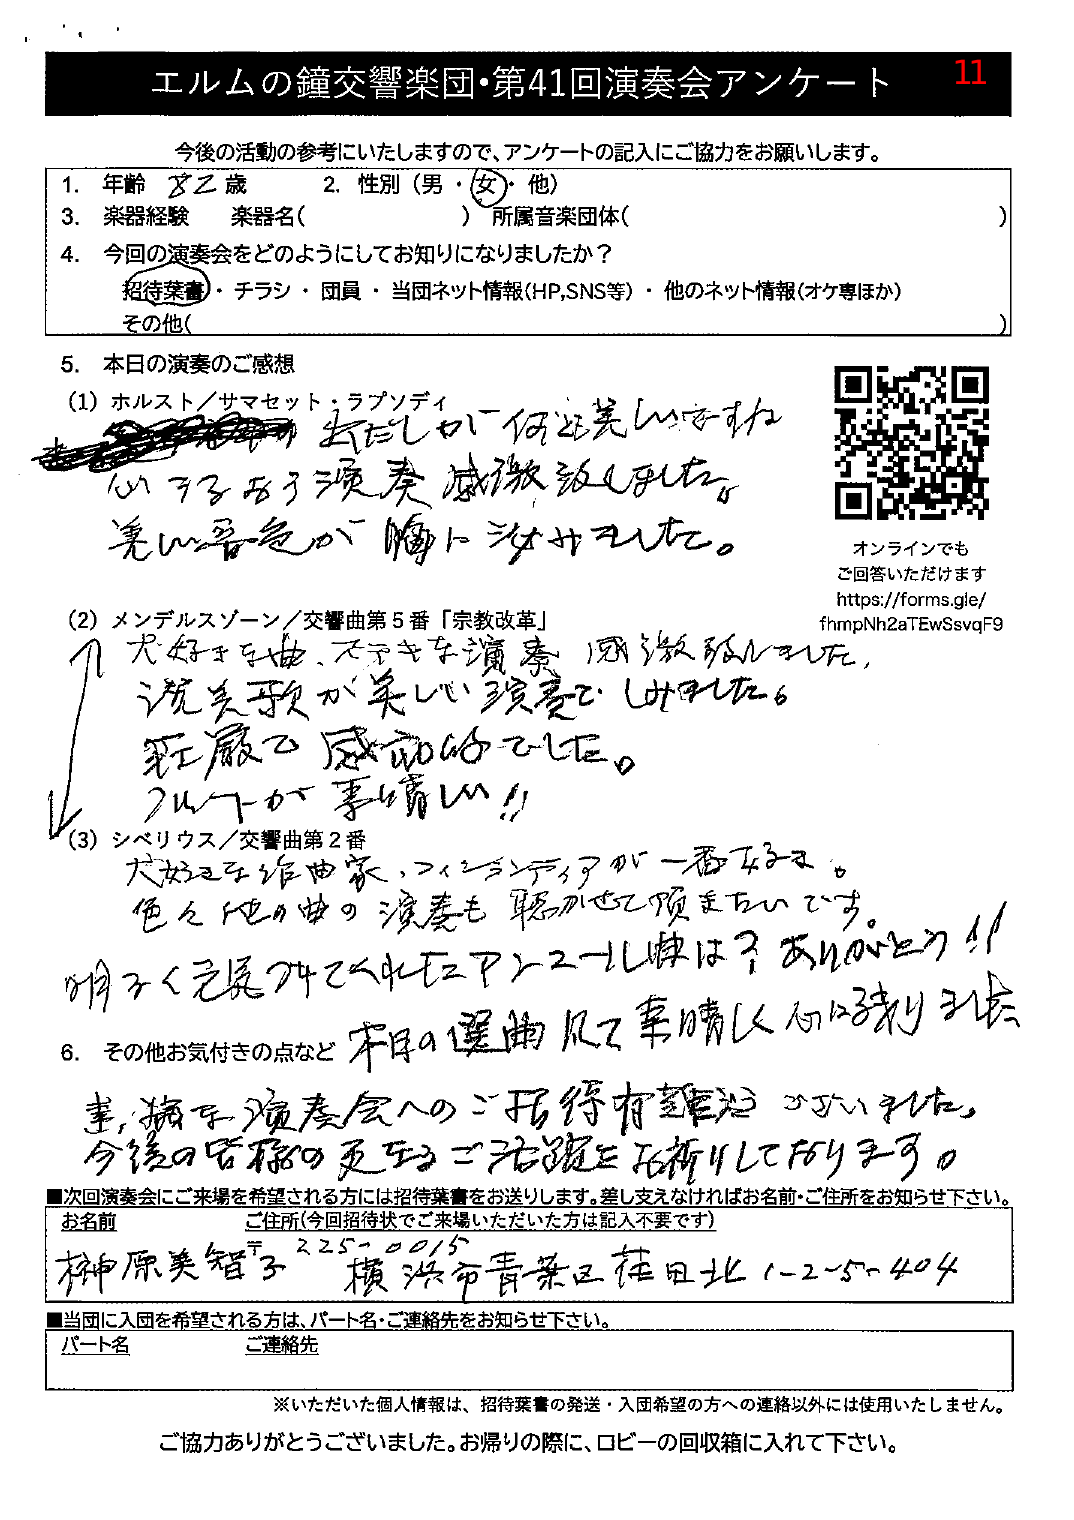 エルムの鐘交響楽団・第41回演奏会アンケート
11
今後の活動の参考にいたしますので、アンケートの記入にご協力をお願いします。
1. 年齢 82 歳 2. 性別（男 ・ 女 ・ 他）
3. 楽器経験 楽器名( ) 所属音楽団体( )
4. 今回の演奏会をどのようにしてお知りになりましたか？
招待葉書 ・ チラシ ・ 団員 ・ 当団ネット情報(HP,SNS等) ・ 他のネット情報(オケ専ほか)
その他( )
5. 本日の演奏のご感想
(1) ホルスト／サマセット・ラプソディ
出だしが何とも美しいですね
演奏 感激致しました。
美しい音色が胸に沁みました。
オンラインでも
ご回答いただけます
https://forms.gle/
fhmpNh2aTEwSsvqF9
(2) メンデルスゾーン／交響曲第５番「宗教改革」
大好きな曲、ステキな演奏 感激致しました。
讃美歌が美しい演奏で しみました。
荘厳で 感動的でした。
フルートが素晴しい!!
(3) シベリウス／交響曲第２番
大好きな作曲家、フィンランディアが一番
色々他の曲の演奏も聴かせて頂きたいです。
明るく元気づけてくれた アンコール曲は？ ありがとう!!
6. その他お気付きの点など 本日の選曲 凡て素晴しく心に残りました
素晴な演奏会へのご招待有難うございました。
今後の皆様の更なるご活躍をお祈りしております。
■次回演奏会にご来場を希望される方には招待葉書をお送りします。差し支えなければお名前・ご住所をお知らせ下さい。
お名前 ご住所(今回招待状でご来場いただいた方は記入不要です)
榊原美智子 〒225-0015 横浜市青葉区荏田北1-2-5-404
■当団に入団を希望される方は、パート名・ご連絡先をお知らせ下さい。
パート名 ご連絡先
※いただいた個人情報は、招待葉書の発送・入団希望の方への連絡以外には使用いたしません。
ご協力ありがとうございました。お帰りの際に、ロビーの回収箱に入れて下さい。